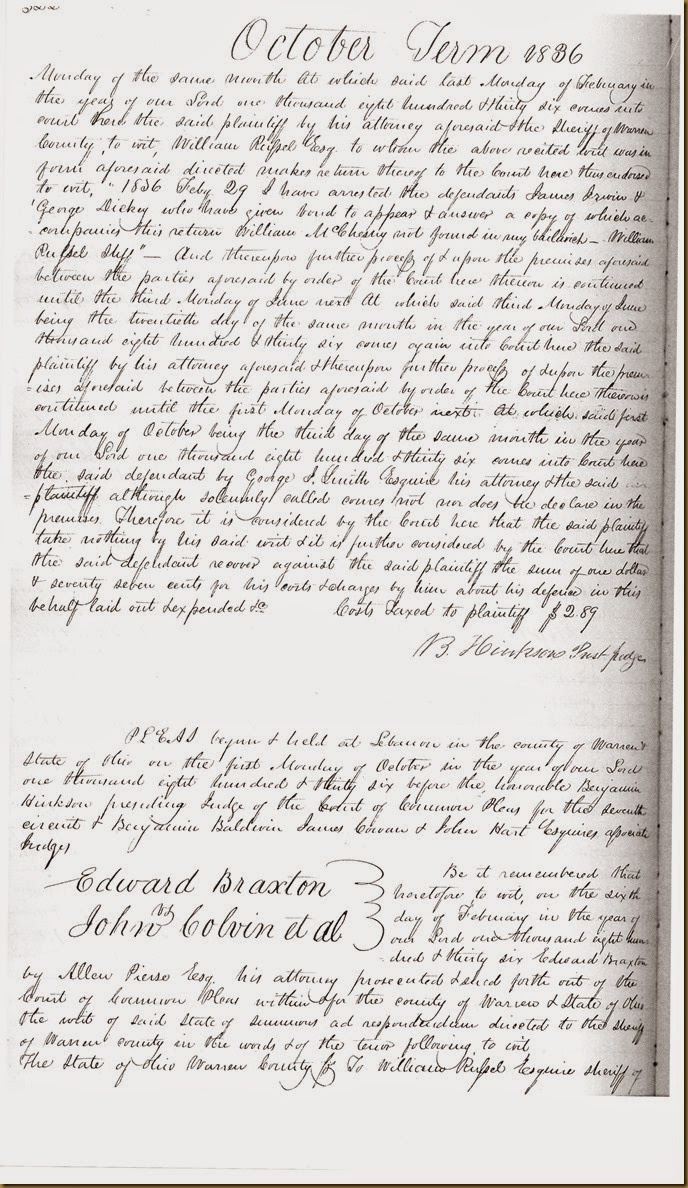 October Term 1836
Monday of the same month At which said last Monday of February in
the year of our Lord one thousand eight hundred & thirty six comes into
court here the said plaintiff by his attorney aforesaid & the Sheriff of Warren
County, to wit, William Russel Esq. to whom the above recited writ was in
form aforesaid directed makes return thereof to the Court here thus endorsed
to wit, "1836 Feby 29 I have arrested the defendants James Irwin &
George Dickey who have given bond to appear & answer a copy of which ac-
-companies this return William McChesny not found in my bailiwick – William
Russel Shff" – And thereupon further process of & upon the premises aforesaid
between the parties aforesaid by order of the Court here thereon is continued
until the third Monday of June next At which said third Monday of June
being the twentieth day of the same month in the year of our Lord one
thousand eight hundred & thirty six comes again into Court here the said
plaintiff by his attorney aforesaid & thereupon further process of & upon the prem-
-ises aforesaid between the parties aforesaid by order of the Court here thereon is
continued until the first Monday of October next. At which said first
Monday of October being the third day of the same month in the year
of our Lord one thousand eight hundred & thirty six comes into Court here
the said defendant by George J. Smith Esquire his attorney & the said
plaintiff although solemnly called comes not nor does he declare in the
premises. Therefore it is considered by the Court here that the said plaintiff
take nothing by his said writ & it is further considered by the Court here that
the said defendant recover against the said plaintiff the sum of one dollar
& seventy seven cents for his costs & charges by him about his defence in this
behalf laid out & expended &c Costs Taxed to plaintiff $2.89
B. Hinkson Prest Judge
PLEAS begun & held at Lebanon in the county of Warren &
State of Ohio on the first Monday of October in the year of our Lord
one thousand eight hundred & thirty six before the honorable Benjamin
Hinkson presiding Judge of the Court of Common Pleas for the seventh
circuit & Benjamin Baldwin James Cowan & John Hart Esquires associate
Judges
Edward Braxton
vs
John Colvin et al
Be it remembered that
heretofore to wit, on the sixth
day of February in the year of
our Lord one thousand eight hun-
-dred & thirty six Edward Braxton
by Allen Pierse Esq. his attorney prosecuted & sued forth out of the
Court of Common Pleas within & for the county of Warren & State of Ohio
the writ of said State of summons ad respondendum directed to the sheriff
of Warren county in the words & of the tenor following to wit
The State of Ohio Warren County ss To William Russel Esquire sheriff of